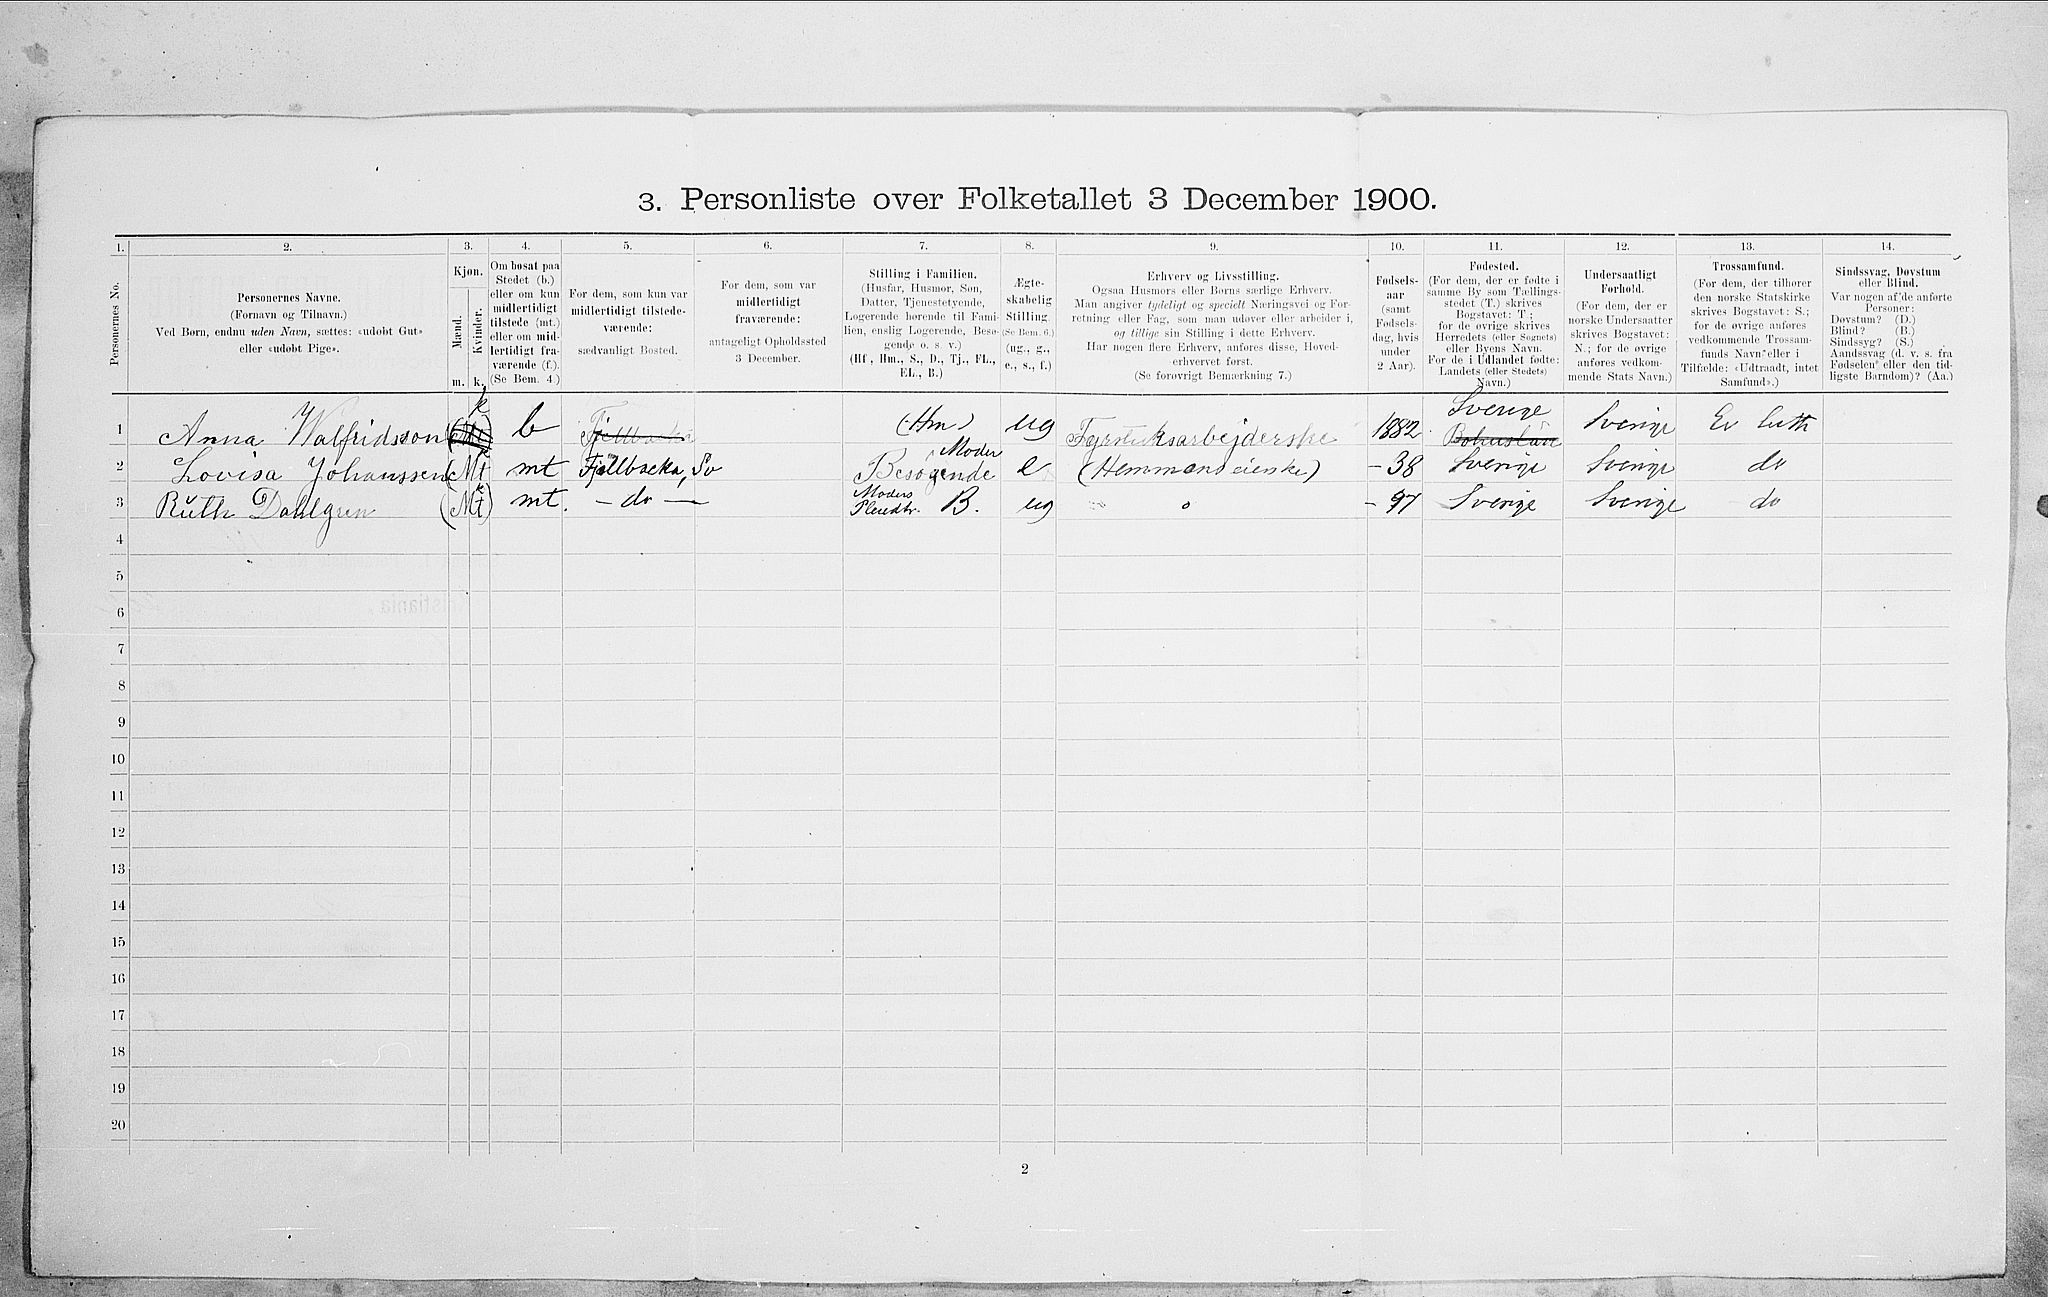 3. Personliste over Folketallet 3 December 1900.
1. 2. 3. 4. 5. 6. 7. 8. 9. 10. 11. 12. 13. 14.
Personernes No.
Personernes Navne.
(Fornavn og Tilnavn.)
Ved Børn, endnu uden Navn, sættes: «udøbt Gut»
eller «udøbt Pige».
Kjøn.
Mænd.
Kvinder.
m. k.
Om bosat paa
Stedet (b.)
eller om kun
midlertidigt
tilstede (mt.)
eller om mid-
lertidigt fra-
værende (f.).
(Se Bem. 4.)
For dem, som kun var
midlertidigt tilstede-
værende:
sædvanligt Bosted.
For dem, som var
midlertidigt
fraværende:
antageligt Opholdssted
3 December.
Stilling i Familien.
(Husfar, Husmor, Søn,
Datter, Tjenestetyende,
Logerende hørende til Fami-
lien, enslig Logerende, Besø-
gende o. s. v.)
(Hf., Hm., S., D., Tj., FL.,
EL., B.)
Ægte-
skabelig
Stilling.
(Se Bem. 6.)
(ug., g.,
e., s., f.)
Erhverv og Livsstilling.
Ogsaa Husmors eller Børns særlige Erhverv.
Man angiver tydeligt og specielt Næringsvei og For-
retning eller Fag, som man udøver eller arbeider i,
og tillige sin Stilling i dette Erhverv.
Har nogen flere Erhverv, anføres disse, Hoved-
erhvervet først.
(Se forøvrigt Bemærkning 7.)
Fødsels-
aar
(samt
Fødsels-
dag, hvis
under
2 Aar).
Fødested.
(For dem, der er fødte i
samme By som Tællings-
stedet (T.) skrives
Bogstavet: T.;
for de øvrige skrives
Herredets (eller Sognets)
eller Byens Navn.
For de i Udlandet fødte:
Landets (eller Stedets)
Navn.)
Undersaatligt
Forhold.
(For dem, der er
norske Undersaatter
skrives Bogstavet:
N.; for de øvrige
anføres vedkom-
mende Stats Navn.)
Trossamfund.
(For dem, der tilhører
den norske Statskirke
skrives Bogstavet: S.;
for de øvrige anføres
vedkommende Trossam-
funds Navn eller i
Tilfælde: «Udtraadt, intet
Samfund».)
Sindssvag, Døvstum
eller Blind.
Var nogen af de anførte
Personer:
Døvstum? (D.)
Blind? (B.)
Sindssyg? (S.)
Aandssvag (d. v. s. fra
Fødselen eller den tid-
ligste Barndom)? (Aa.)
k Sverige
1 Anna Walfridsson b Fjellbacka (Hm) ug Fyrstiksarbejderske 1882. Bohuslän Sverige Ev luth
Moder
2 Lovisa Johanssen (Mt mt Fjellbacka, Sv Besøgende e (Hemmandseierske) - 38 Sverige Sverige do
k Moders
3 Ruth Dahlgren (Mt) mt. - do - B. ug - 97 Sverige Sverige do
4
5
6
7
8
9
10
11
12
13
14
15
16
17
18
19
20
2